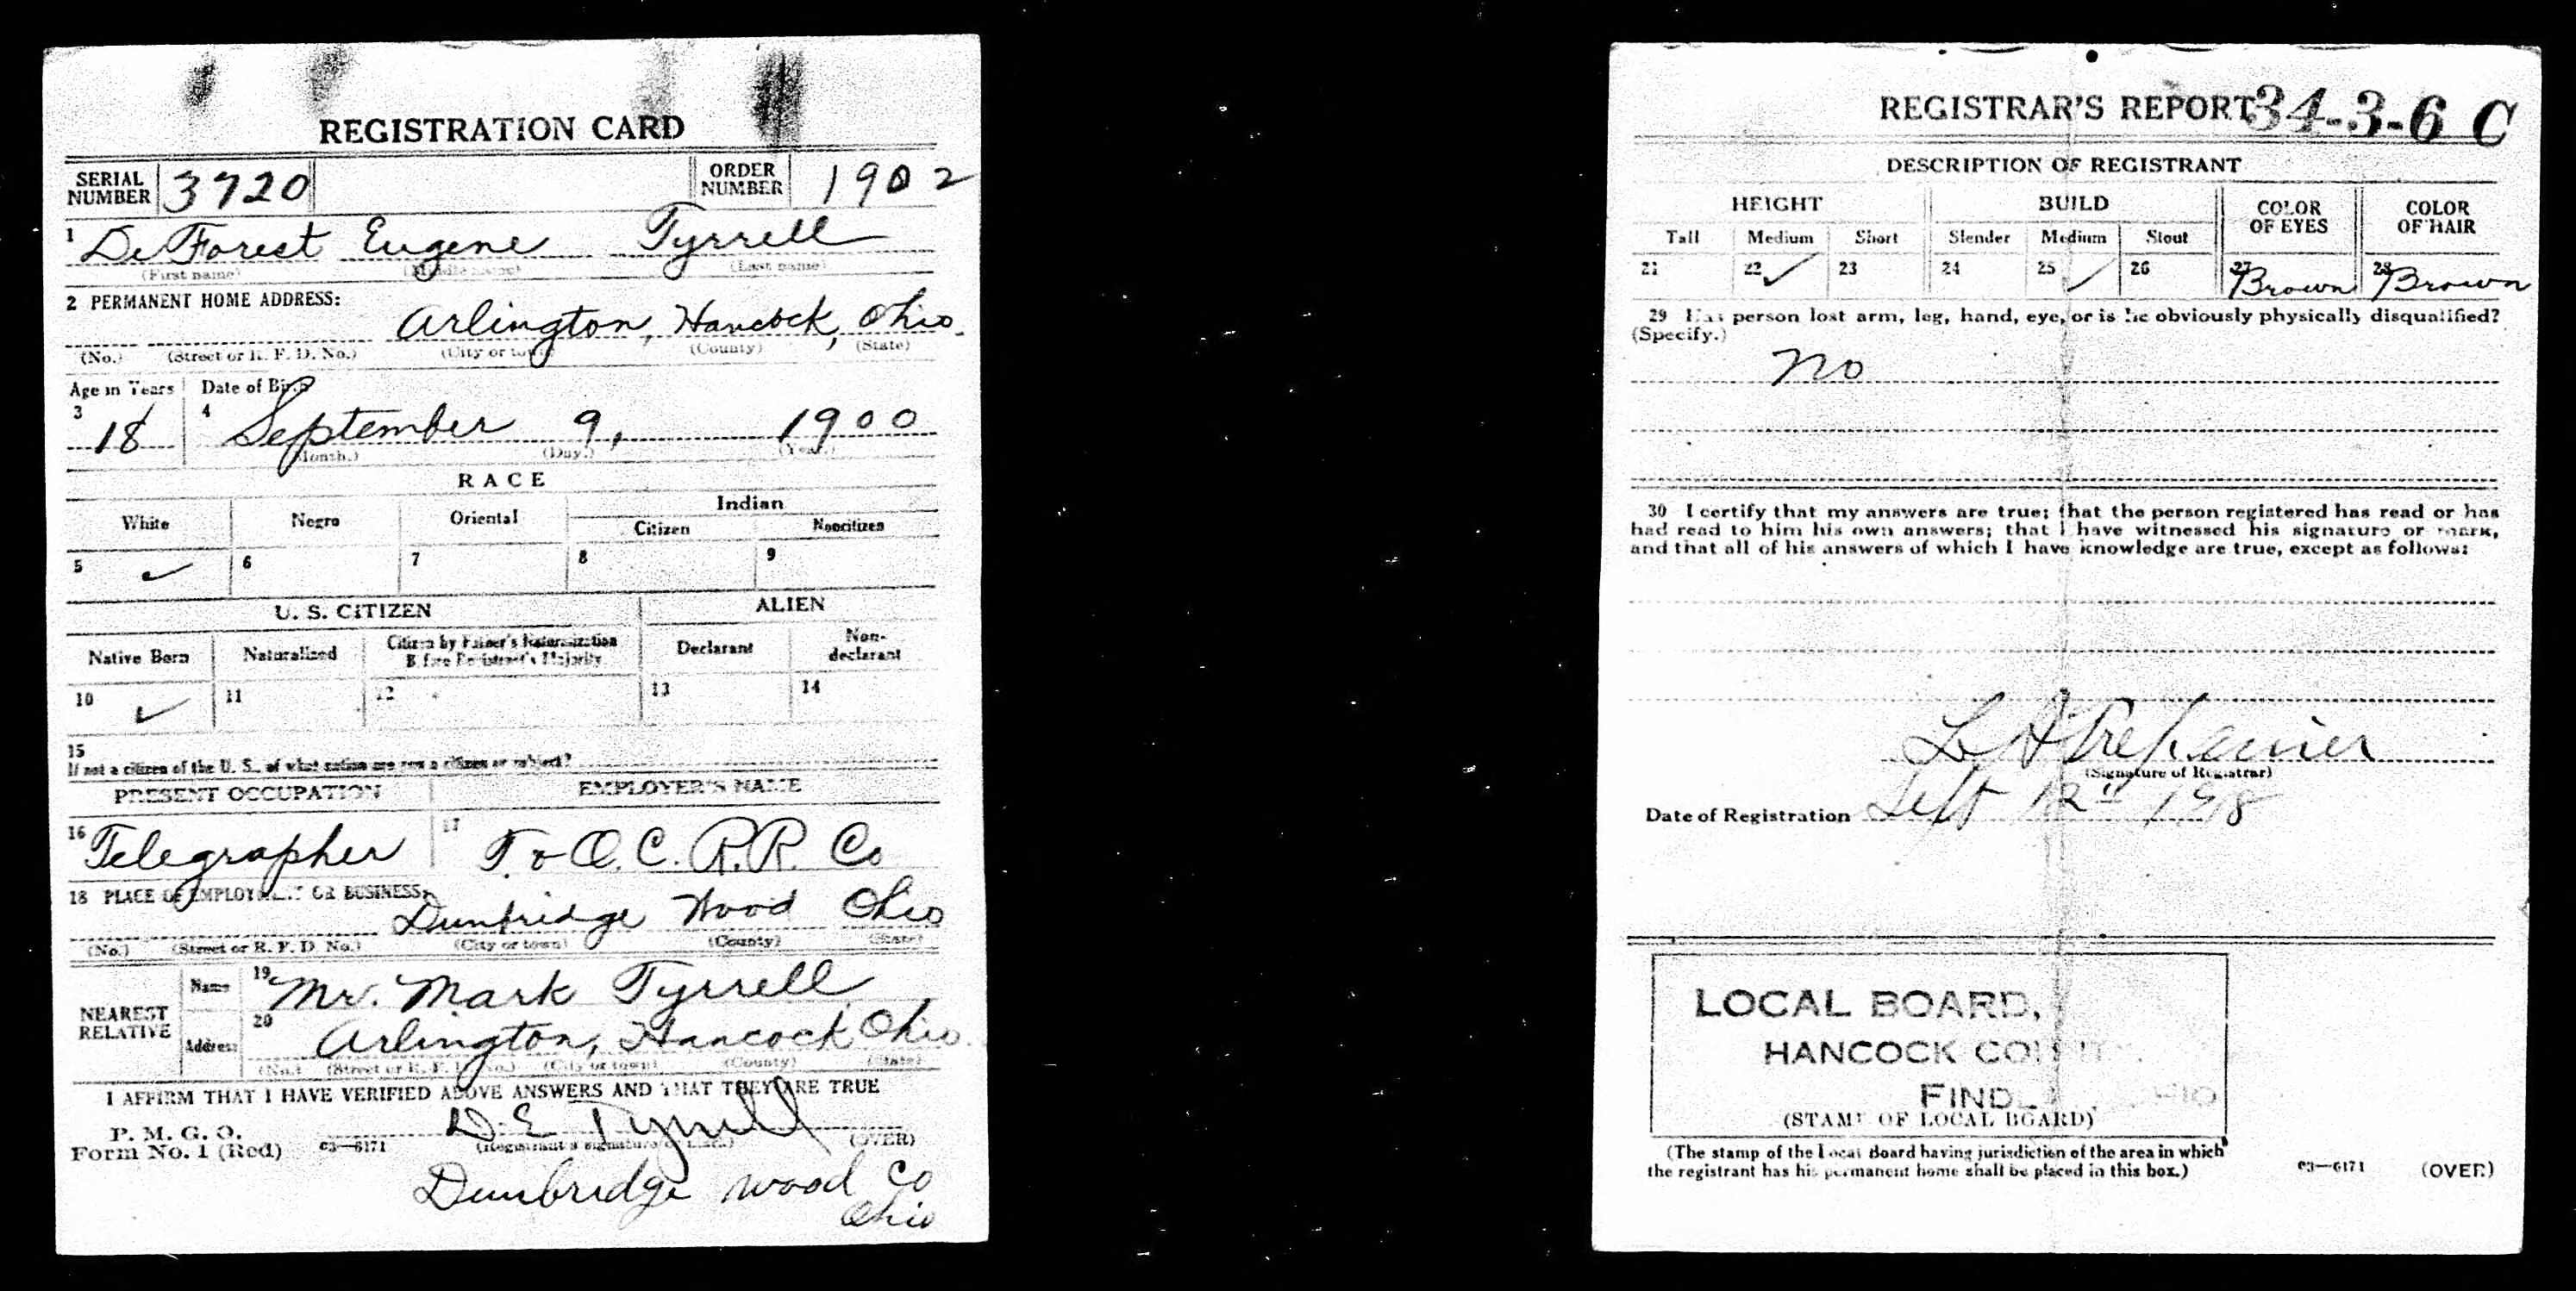 REGISTRATION CARD
SERIAL NUMBER 3720 ORDER NUMBER 1902
1 DeForest Eugene Tyrrell
(First name) (Middle name) (Last name)
2 PERMANENT HOME ADDRESS:
Arlington, Hancock, Ohio.
(No.) (Street or R. F. D. No.) (City or town) (County) (State)
Age in Years Date of Birth
3 18 4 September 9, 1900
(Month.) (Day.) (Year.)
RACE
White Negro Oriental Indian
Citizen Noncitizen
5 ✓ 6 7 8 9
U. S. CITIZEN ALIEN
Native Born Naturalized Citizen by Father's Naturalization Before Registrant's Majority Declarant Non-declarant
10 ✓ 11 12 13 14
15
If not a citizen of the U. S., of what nation are you a citizen or subject?
PRESENT OCCUPATION EMPLOYER'S NAME
16 Telegrapher 17 T. & O. C. R.R. Co
18 PLACE OF EMPLOYMENT OR BUSINESS:
Dunbridge Wood Ohio
(No.) (Street or R. F. D. No.) (City or town) (County) (State)
NEAREST RELATIVE Name 19 Mr. Mark Tyrrell
Address 20 Arlington, Hancock Ohio.
(No.) (Street or R. F. D. No.) (City or town) (County) (State)
I AFFIRM THAT I HAVE VERIFIED ABOVE ANSWERS AND THAT THEY ARE TRUE
P. M. G. O.
Form No. 1 (Red) 03—6171 D. E Tyrrell (OVER)
(Registrant's signature or mark)
Dunbridge Wood Co
Ohio
REGISTRAR'S REPORT 34-3-6 C
DESCRIPTION OF REGISTRANT
HEIGHT BUILD COLOR OF EYES COLOR OF HAIR
Tall Medium Short Slender Medium Stout
21 22 ✓ 23 24 25 ✓ 26 27 Brown 28 Brown
29 Has person lost arm, leg, hand, eye, or is he obviously physically disqualified?
(Specify.)
No
30 I certify that my answers are true; that the person registered has read or has
had read to him his own answers; that I have witnessed his signature or mark,
and that all of his answers of which I have knowledge are true, except as follows:
(Signature of Registrar)
Date of Registration Sept 12" 1918
LOCAL BOARD,
HANCOCK COUNTY,
FINDLAY, OHIO
(STAMP OF LOCAL BOARD)
(The stamp of the Local Board having jurisdiction of the area in which
the registrant has his permanent home shall be placed in this box.)
03—6171 (OVER)